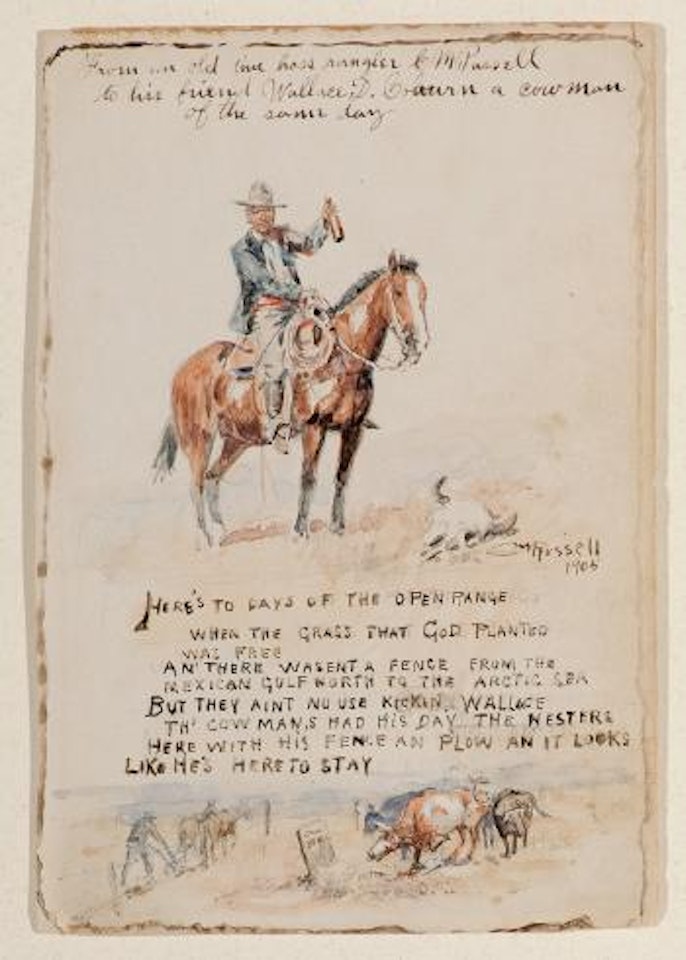 From an old time hoss rangler C M Russell
to his friend Wallace D. Coburn a cow man
of the same day
CMRussell
1905
HERE'S TO DAYS OF THE OPEN RANGE
WHEN THE GRASS THAT GOD PLANTED
WAS FREE
AN' THERE WASENT A FENCE FROM THE
MEXICAN GULF NORTH TO THE ARCTIC SEA
BUT THEY AINT NO USE KICKIN, WALLACE
TH' COW MAN,S HAD HIS DAY THE NESTERS
HERE WITH HIS FENCE AN PLOW AN IT LOOKS
LIKE HE'S HERE TO STAY